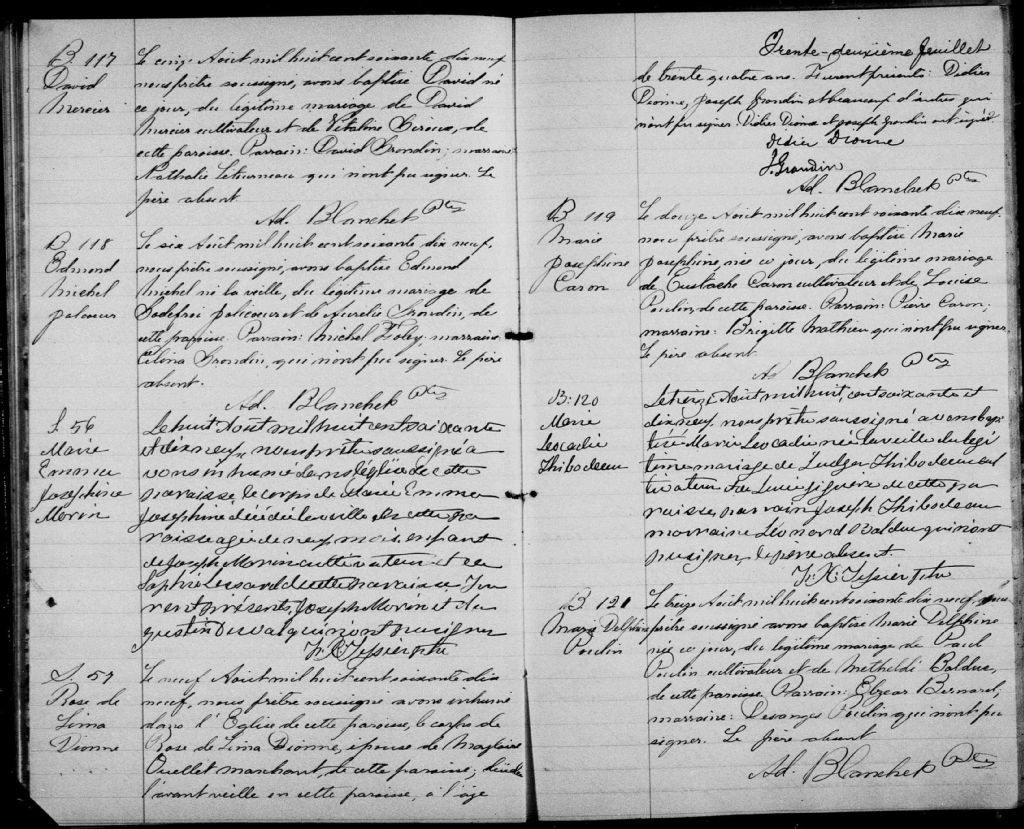 B 117
David
Mercier
Le onze Août mil huit cent soixante dix neuf
nous prêtre soussigné, avons baptisé David né
ce jour, du légitime mariage de David
Mercier cultivateur et de Vitaline Giroux, de
cette paroisse. Parrain: David Grondin; marraine
Nathalie Letourneau qui n'ont pu signer. Le
père absent
Ad. Blanchet Ptre
B 118
Edmond
Michel
Policoeur
Le six Août mil huit cent soixante dix neuf,
nous prêtre soussigné, avons baptisé Edmond
Michel né la veille, du légitime mariage de
Godefroi Policoeur et de Aurelie Grondin, de
cette paroisse. Parrain: Michel Foley, marraine:
Célina Grondin, qui n'ont pu signer. Le père
absent.
Ad. Blanchet Ptre
S 56
Marie
Emma
Josephine
Morin
Le huit Août mil huit cent soixante
et dix neuf nous prêtre soussigné a
vons inhumé dans l'église de cette
paroisse le corps de Marie Emma
Josephine décédée la veille de cette pa
roisse agée de neuf mois, enfant
de Joseph Morin cultivateur et de
Sophie Lessard de cette paroisse. Fu
rent présents, Joseph Morin et Au
gustin qui n'ont pu signer
F. X. Tessier ptre
S. 57
Rose de
Lima
Dionne
Le neuf Août mil huit cent soixante dix
neuf, nous prêtre soussigné avons inhumé
dans l'Eglise de cette paroisse, le corps de
Rose de Lima Dionne, épouse de Magloire
Ouellet marchand, de cette paroisse; décédée
l'avant veille en cette paroisse, à l'âge
Trente-deuxième feuillet
de trente quatre ans. Furent présents: Didier
Dionne, Joseph Grondin et beaucoup d'autres qui
n'ont pu signer. Didier Dionne et Joseph Grondin ont signé
Didier Dionne
J. Grondin
Ad. Blanchet Ptre
B 119
Marie
Josephine
Caron
Le douze Août mil huit cent soixante dix neuf.
nous prêtre soussigné, avons baptisé Marie
Josephine, née ce jour, du légitime mariage
de Eustache Caron cultivateur et de Louise
Poulin, de cette paroisse. Parrain: Pierre Caron;
marraine: Brigitte Mathieu qui n'ont pu signer
Le père absent
Ad Blanchet Ptre
B. 120
Marie
Leocadie
Thibodeau
Le treize Août mil huit cent soixante et
dix neuf, nous prêtre soussigné avons bap
tisé Marie Leocadie née la veille du légi
time mariage de Ludger Thibodeau cul
tivateur et de Lucie Giguère de cette pa
roisse, parrain Joseph Thibodeau
marraine Léonore Bolduc qui n'ont
pu signer, le père absent.
F. X. Tessier ptre
B. 121
Marie Delphine
Poulin
Le treize Août mil huit cent soixante dix neuf, nous
prêtre soussigné avons baptisé Marie Delphine
née ce jour, du légitime mariage de Paul
Poulin cultivateur et de Methelde Bolduc,
de cette paroisse. Parrain: Elzear Bernard;
marraine: Desanges Poulin qui n'ont pu
signer. Le père absent
Ad. Blanchet Ptre